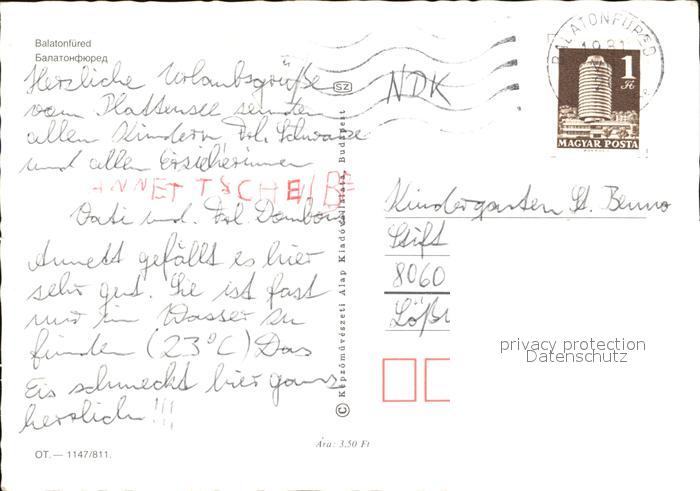 Balatonfüred
Балатонфюред
Herzliche Urlaubsgrüße
vom Plattensee senden
allen Kindern Frl. Schwarze
und allen Erzieherinnen
ANNETT SCHEIBE
Vati und. Frl. Dombow
Annett gefällt es hier
sehr gut. Sie ist fast
nur im Wasser zu
finden (23°C) Das
Eis schmeckt hier ganz
herrlich!!!
OT. — 1147/811.
SZ
© Képzőművészeti Alap Kiadóvállalata, Budapest
Ára: 3,50 Ft
NDK
BALATONFÜRED
1981
1 Ft
MAGYAR POSTA
Kindergarten St. Benno
Stift
8060
privacy protection
Datenschutz